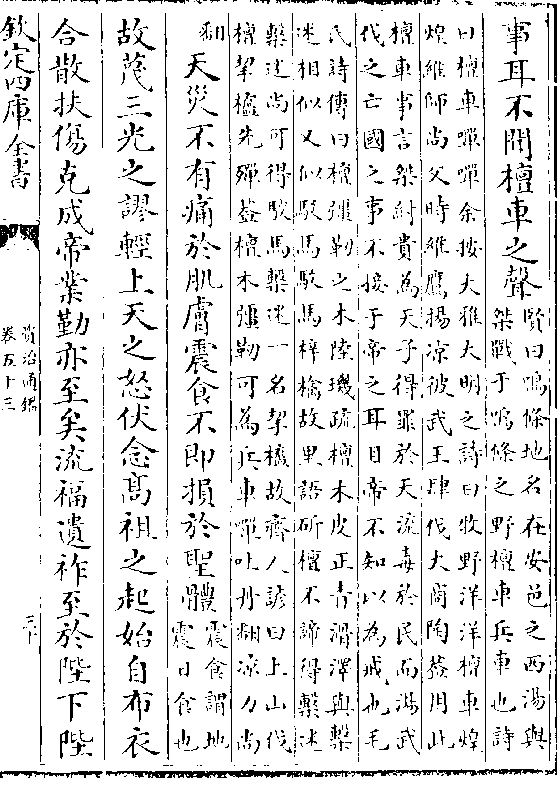 事耳不聞檀車之聲賢曰鳴條地名在安邑之西湯與
桀戰于鳴條之野檀車兵車也詩
曰檀車嘽嘽余按大雅大明之詩曰牧野洋洋檀車煌
煌維師尚父時維鷹揚凉彼武王肆伐大商陶葢用此
檀車事言桀紂貴為天子得罪於天流毒於民而湯武
伐之亡國之事不接于帝之耳目帝不知以為戒也毛
氏詩傳曰檀彊韌之木陸璣疏檀木皮正青滑澤與檕
迷相似又似駮馬駮馬梓榆故里語斫檀不諦得檕迷
檕迷尚可得駮馬檕迷一名挈橀故齊人諺曰上山伐
檀挈橀先殫葢檀木彊韌可為兵車嘽吐丹翻凉力尚
翻天災不有痛於肌膚震食不即損於聖體震食謂地
震日食也
故蔑三光之謬輕上天之怒伏念高祖之起始自布衣
合散扶傷克成帝業勤亦至矣流福遺祚至於陛下陛
欽定四庫全書
資治通鑑
卷五十三